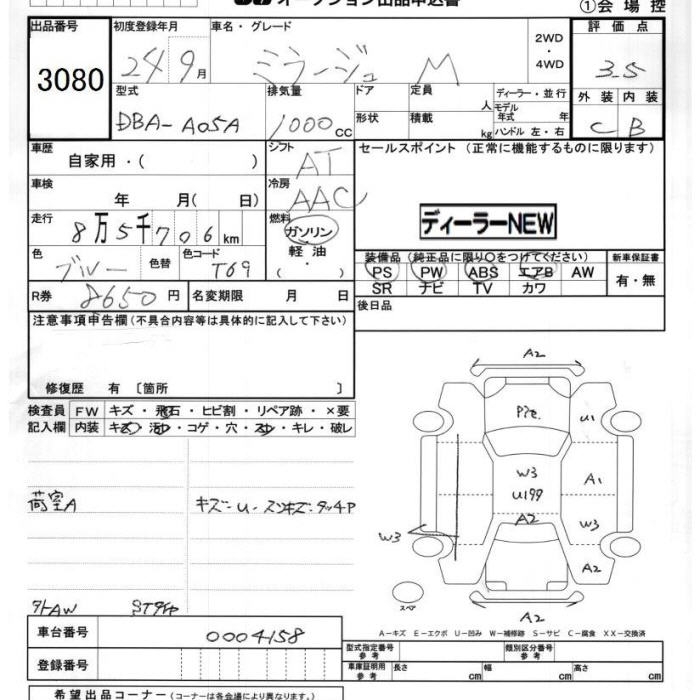 オークション出品申込書
①会場控
出品番号
3080
初度登録年月
24 9月
車名・グレード
ミラージュ M
2WD
・
4WD
評価点
3.5
外装 内装
C B
型式
DBA-A05A
排気量
1000cc
ドア
形状
定員 人
積載 kg
ディーラー・並行
モデル年式 年
ハンドル 左・右
車歴
自家用・( )
シフト
AT
車検
年 月( 日)
冷房
AAC
走行
8万5千706km
燃料
ガソリン
軽油
( ・ )
色
ブルー
色替
色コード
T69
R券 8650円
名変期限 月 日
セールスポイント (正常に機能するものに限ります)
ディーラーNEW
装備品 (純正品に限り○をつけてください)
PS PW ABS エアB AW
SR ナビ TV カワ
新車保証書
有・無
後日品
注意事項申告欄 (不具合内容等は具体的に記入して下さい)
修復歴 有 〔箇所 〕
検査員記入欄
FW キズ・飛石・ヒビ割・リペア跡・×要
内装 キズ・汚れ・コゲ・穴・スレ・キレ・破レ
荷室A
キズ-U-スンキズ・タッチP
外AW
A2
Pre.
U1
W3
U199
A1
A2
W3
W3
A2
A2
スペア
A-キズ E-エクボ U-凹み W-補修跡 S-サビ C-腐食 XX-交換済
車台番号
0004158
登録番号
型式指定番号 参考
類別区分番号 参考
車庫証明用 参考
長さ cm
幅 cm
高さ cm
希望出品コーナー (コーナーは各会場により異なります。)